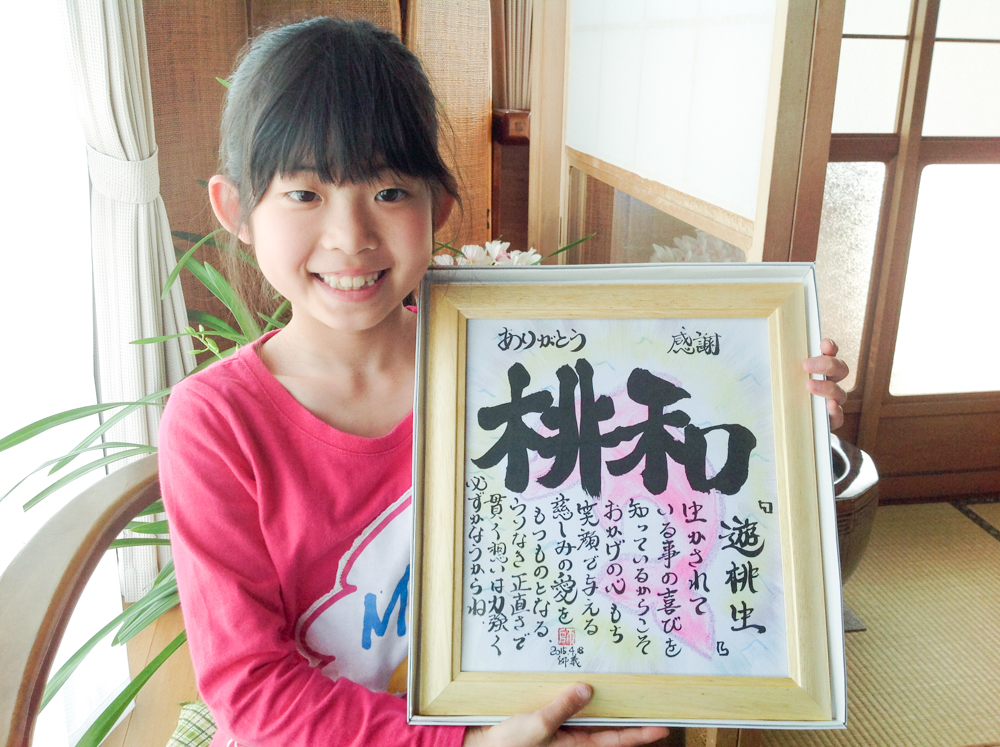 ありがとう
感謝
桃和
『遊桃生』
生かされて
いる事の喜びを
知っているからこそ
おかげの心もち
笑顔で与える
慈しみの愛を
もつものとなる
うそなき正直さで
貫く想いは力強く
必ずかなうからね
M